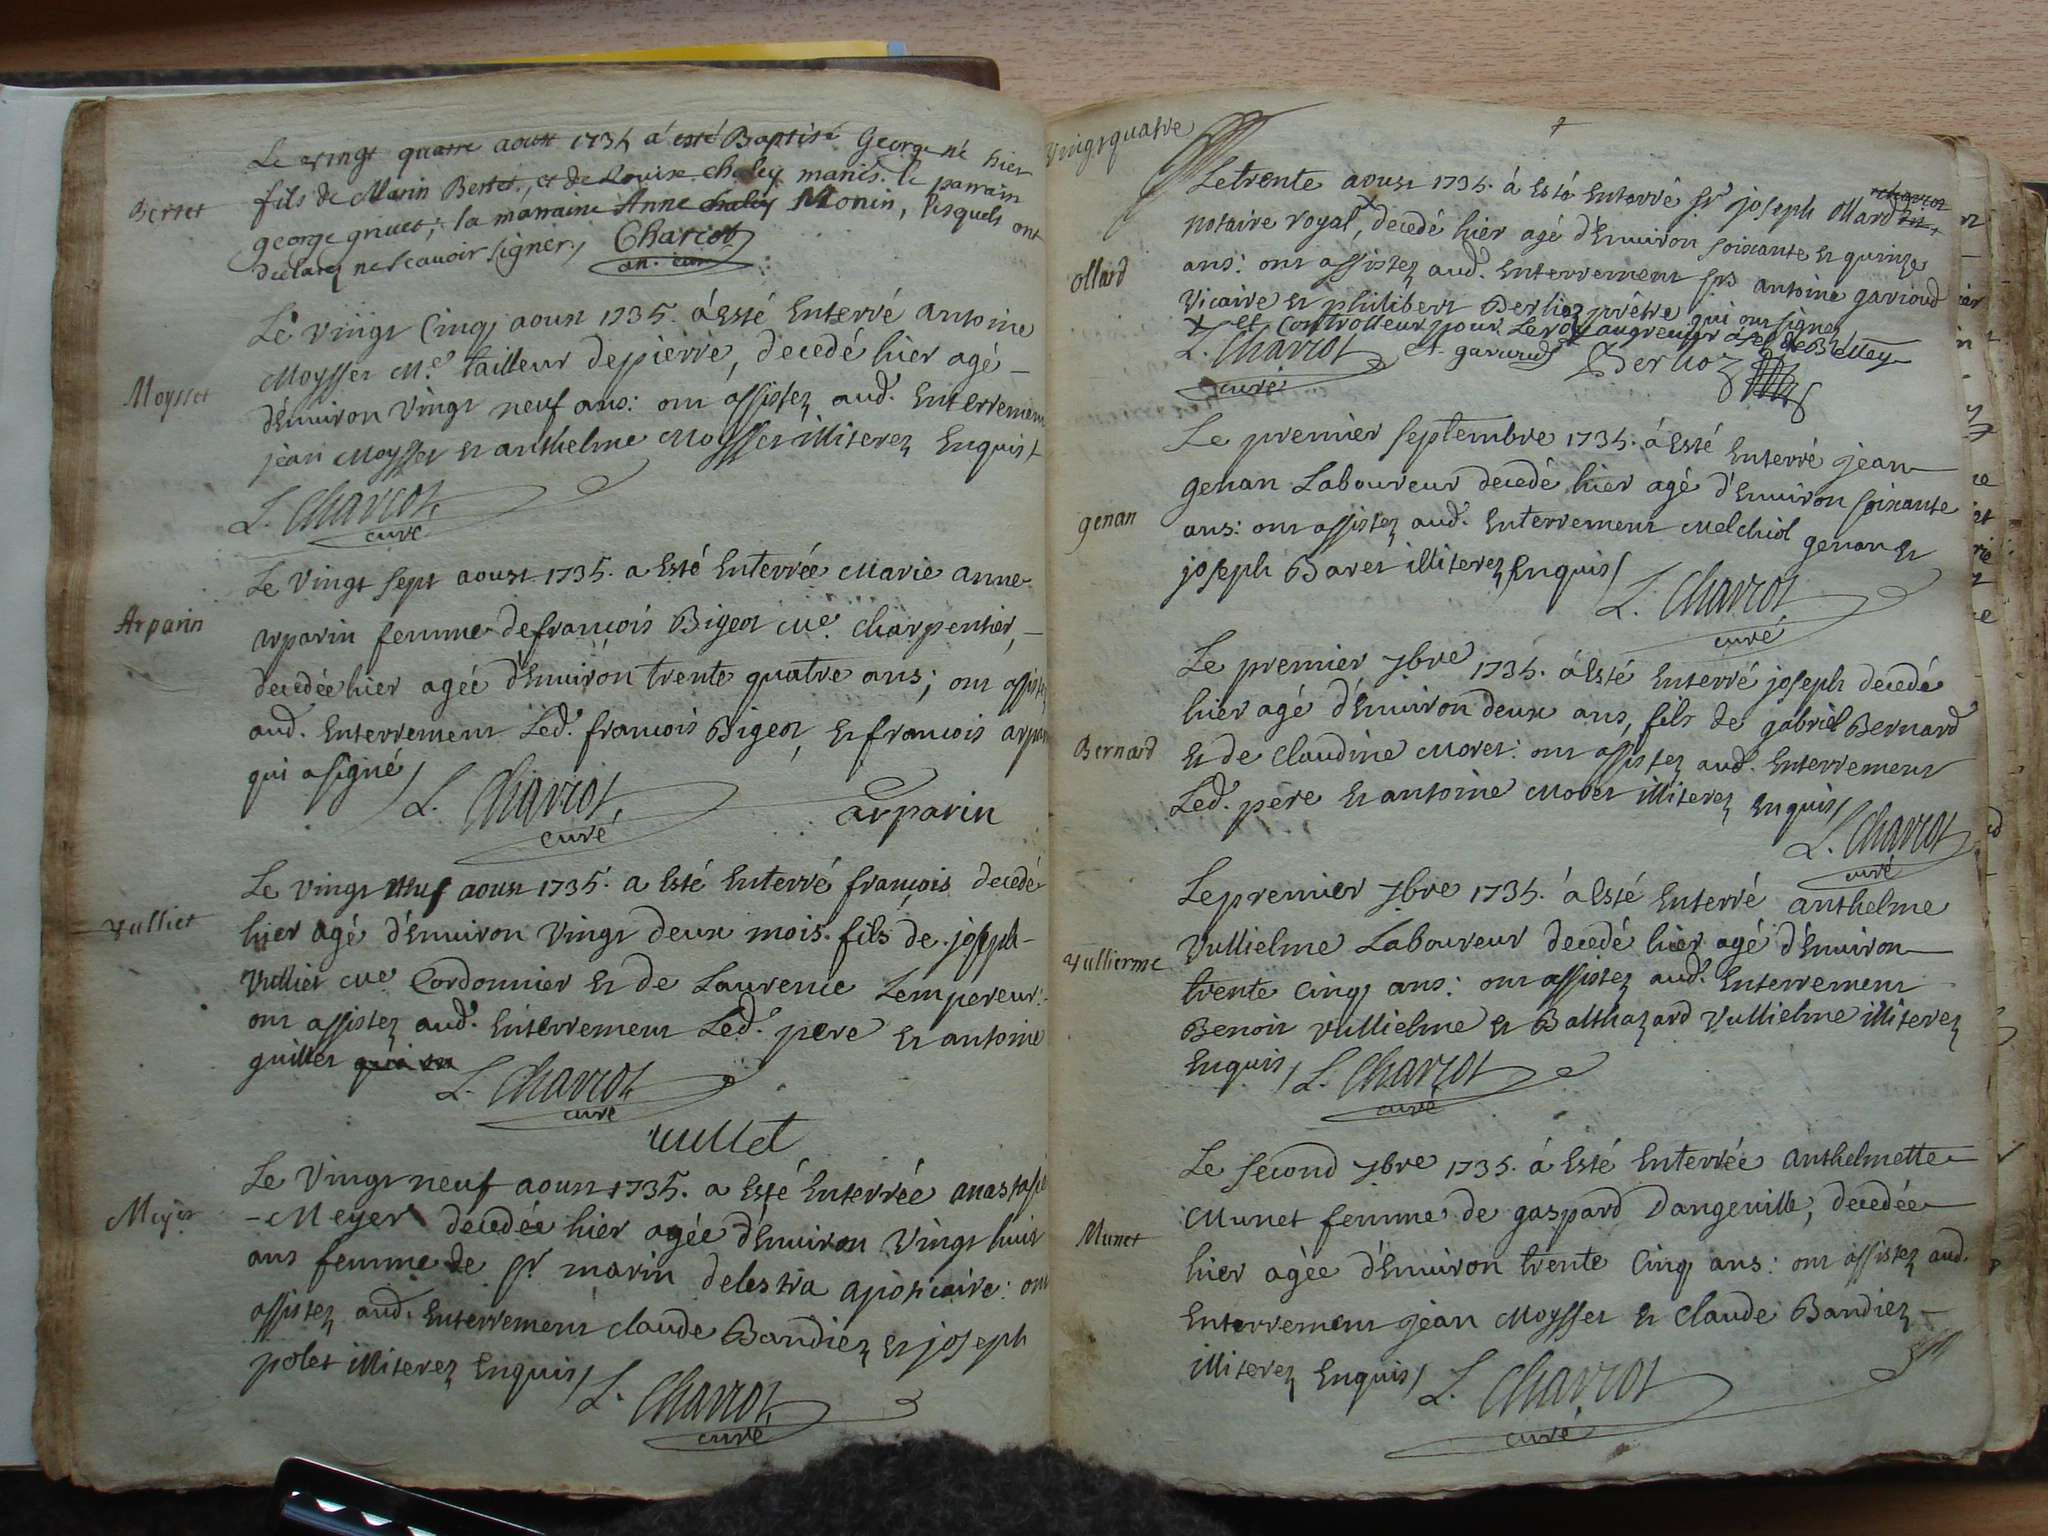 Berset
Le vingt quatre aoust 1735 a esté Baptisé George né hier
fils de Marin Berset, et de Louise Chaley mariés. le parrain
george gruet; la marraine Anne chaley Monin, lesquels ont
declaré ne scavoir signer,
Charcot
an. curé
Moysset
Le vingt Cinq aoust 1735. á Esté Enterré antoine
Moysset Me. tailleur de pierre, decedé hier agé
d'Environ vingt neuf ans: ont assistez aud. Enterrement
jean Moysset et anthelme Moysset illiterez Enquis
L. Charcot
curé
Arparin
Le vingt sept aoust 1735. a Esté Enterrée Marie anne
arparin femme de françois Bigeot Me. charpentier,
decedée hier agée d'Environ trente quatre ans; ont assistez
aud. Enterrement Led. françois Bigeot, et françois arparin
qui a signé
L. Charcot
curé
arparin
Vulliet
Le vingt neuf aoust 1735. a Esté Enterré françois decedé
hier agé d'Environ vingt deux mois. fils de joseph
Vulliet Me Cordonnier et de Laurence Lempereur:
ont assistez aud. Enterrement Led. pere et antoine
guillet qui
L. Charcot
curé
vulliet
Meyer
Le vingt neuf aoust 1735. a Esté Enterrée anastasie
Meyer decedée hier agée d'Environ vingt huit
ans femme de Sr. marin delestra apoticaire: ont
assistez aud. Enterrement claude Bandiez et joseph
polet illiterez Enquis
L. Charcot
curé
vingt quatre
Ollard
Le trente aoust 1735. á Esté Enterré Sr. joseph Ollard
notaire royal, decedé hier agé d'Environ soixante et quinze
ans: ont assistez aud. Enterrement Srs antoine garioud
vicaire et philibert Berlioz prêtre qui ont signez
x et Controlleur pour Le roy au grenier á sel de Belley
L. Charcot
curé
A. garioud
Berlioz
genan
Le premier septembre 1735. á Esté Enterré jean
genan Laboureur decedé hier agé d'Environ soixante
ans: ont assistez aud. Enterrement Melchiol genan et
joseph Baret illiterez Enquis
L. Charcot
curé
Bernard
Le premier 7bre 1735. á Esté Enterré joseph decedé
hier agé d'Environ deux ans, fils de gabriel Bernard
et de Claudine Moret: ont assistez aud. Enterrement
Led. pere et antoine Moret illiterez Enquis
L. Charcot
curé
Vullierme
Le premier 7bre 1735. á Esté Enterré anthelme
Vullielme Laboureur decedé hier agé d'Environ
trente Cinq ans: ont assistez aud. Enterrement
Benoit Vullielme et Balthazard Vullielme illiterez
Enquis
L. Charcot
curé
Munet
Le second 7bre 1735. á Esté Enterrée anthelmette
Munet femme de gaspard Dangeville, decedée
hier agée d'Environ trente Cinq ans: ont assistez aud.
Enterrement jean Moysset et claude Bandiez
illiterez Enquis
L. Charcot
curé